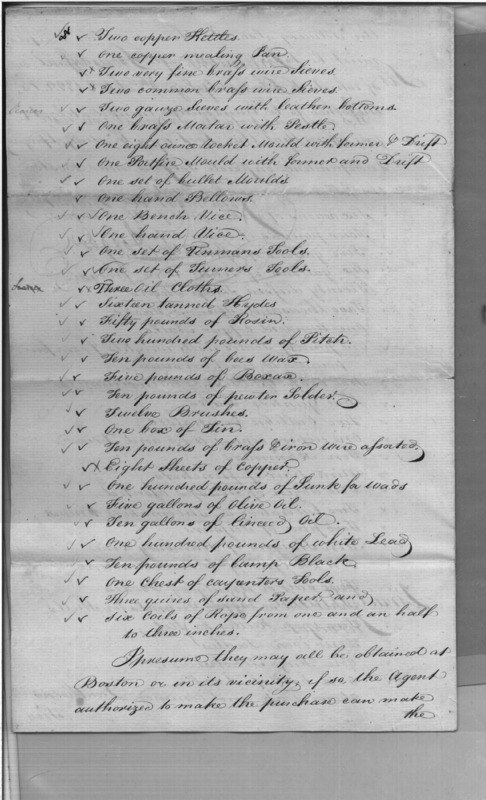 Two copper Kettles.
One copper mealing Pan
Two very fine brass wire Sieves.
Two common brass wire Sieves
Two gauze Sieves with leather bottoms.
One brass Mortar with Pestle
One eight ounce Rocket Mould with former & Drift
One Portfire Mould with former and Drift
One set of bullet Moulds
One hand Bellows.
One Bench Vice.
One hand Vice.
One set of Tinmans Tools.
One set of Turners Tools.
Three Oil Cloths
Sixteen tanned Hydes
Fifty pounds of Rosin.
Two hundred pounds of Pitch.
Ten pounds of bees Wax.
Five pounds of Borax.
Ten pounds of pewter Solder.
Twelve Brushes.
One box of Tin.
Ten pounds of brass & iron wire assorted.
Eight Sheets of Copper.
One hundred pounds of Junk for Wads
Five gallons of Olive Oil.
Ten gallons of linceed Oil.
One hundred pounds of white Lead
Ten pounds of lamp Black
One Chest of carpenters Tools.
Three quires of sand Paper and
Six Coils of Rope from one and an half
to three inches.
I presume they may all be obtained at
Boston or in its vicinity, if so, the Agent
authorized to make the purchase can make
the